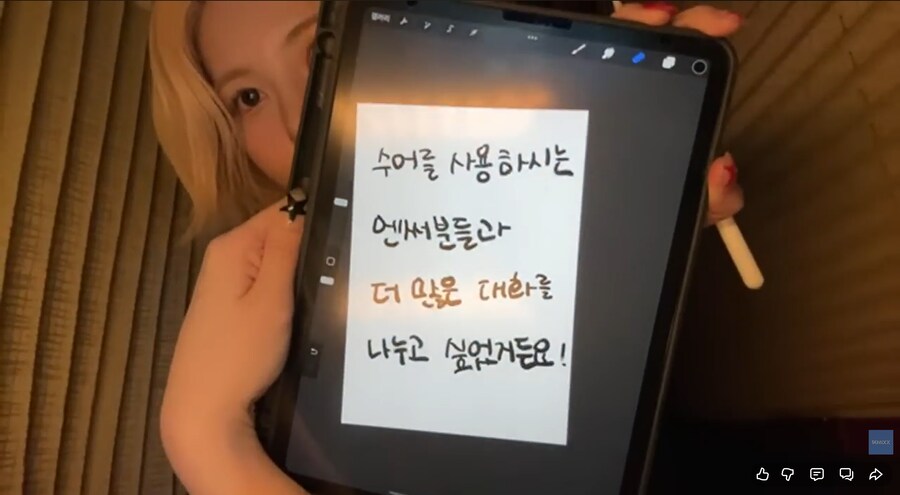 갤러리
수어를 사용하시는
엔써분들과
더 많은 대화를
나누고 싶었거든요!